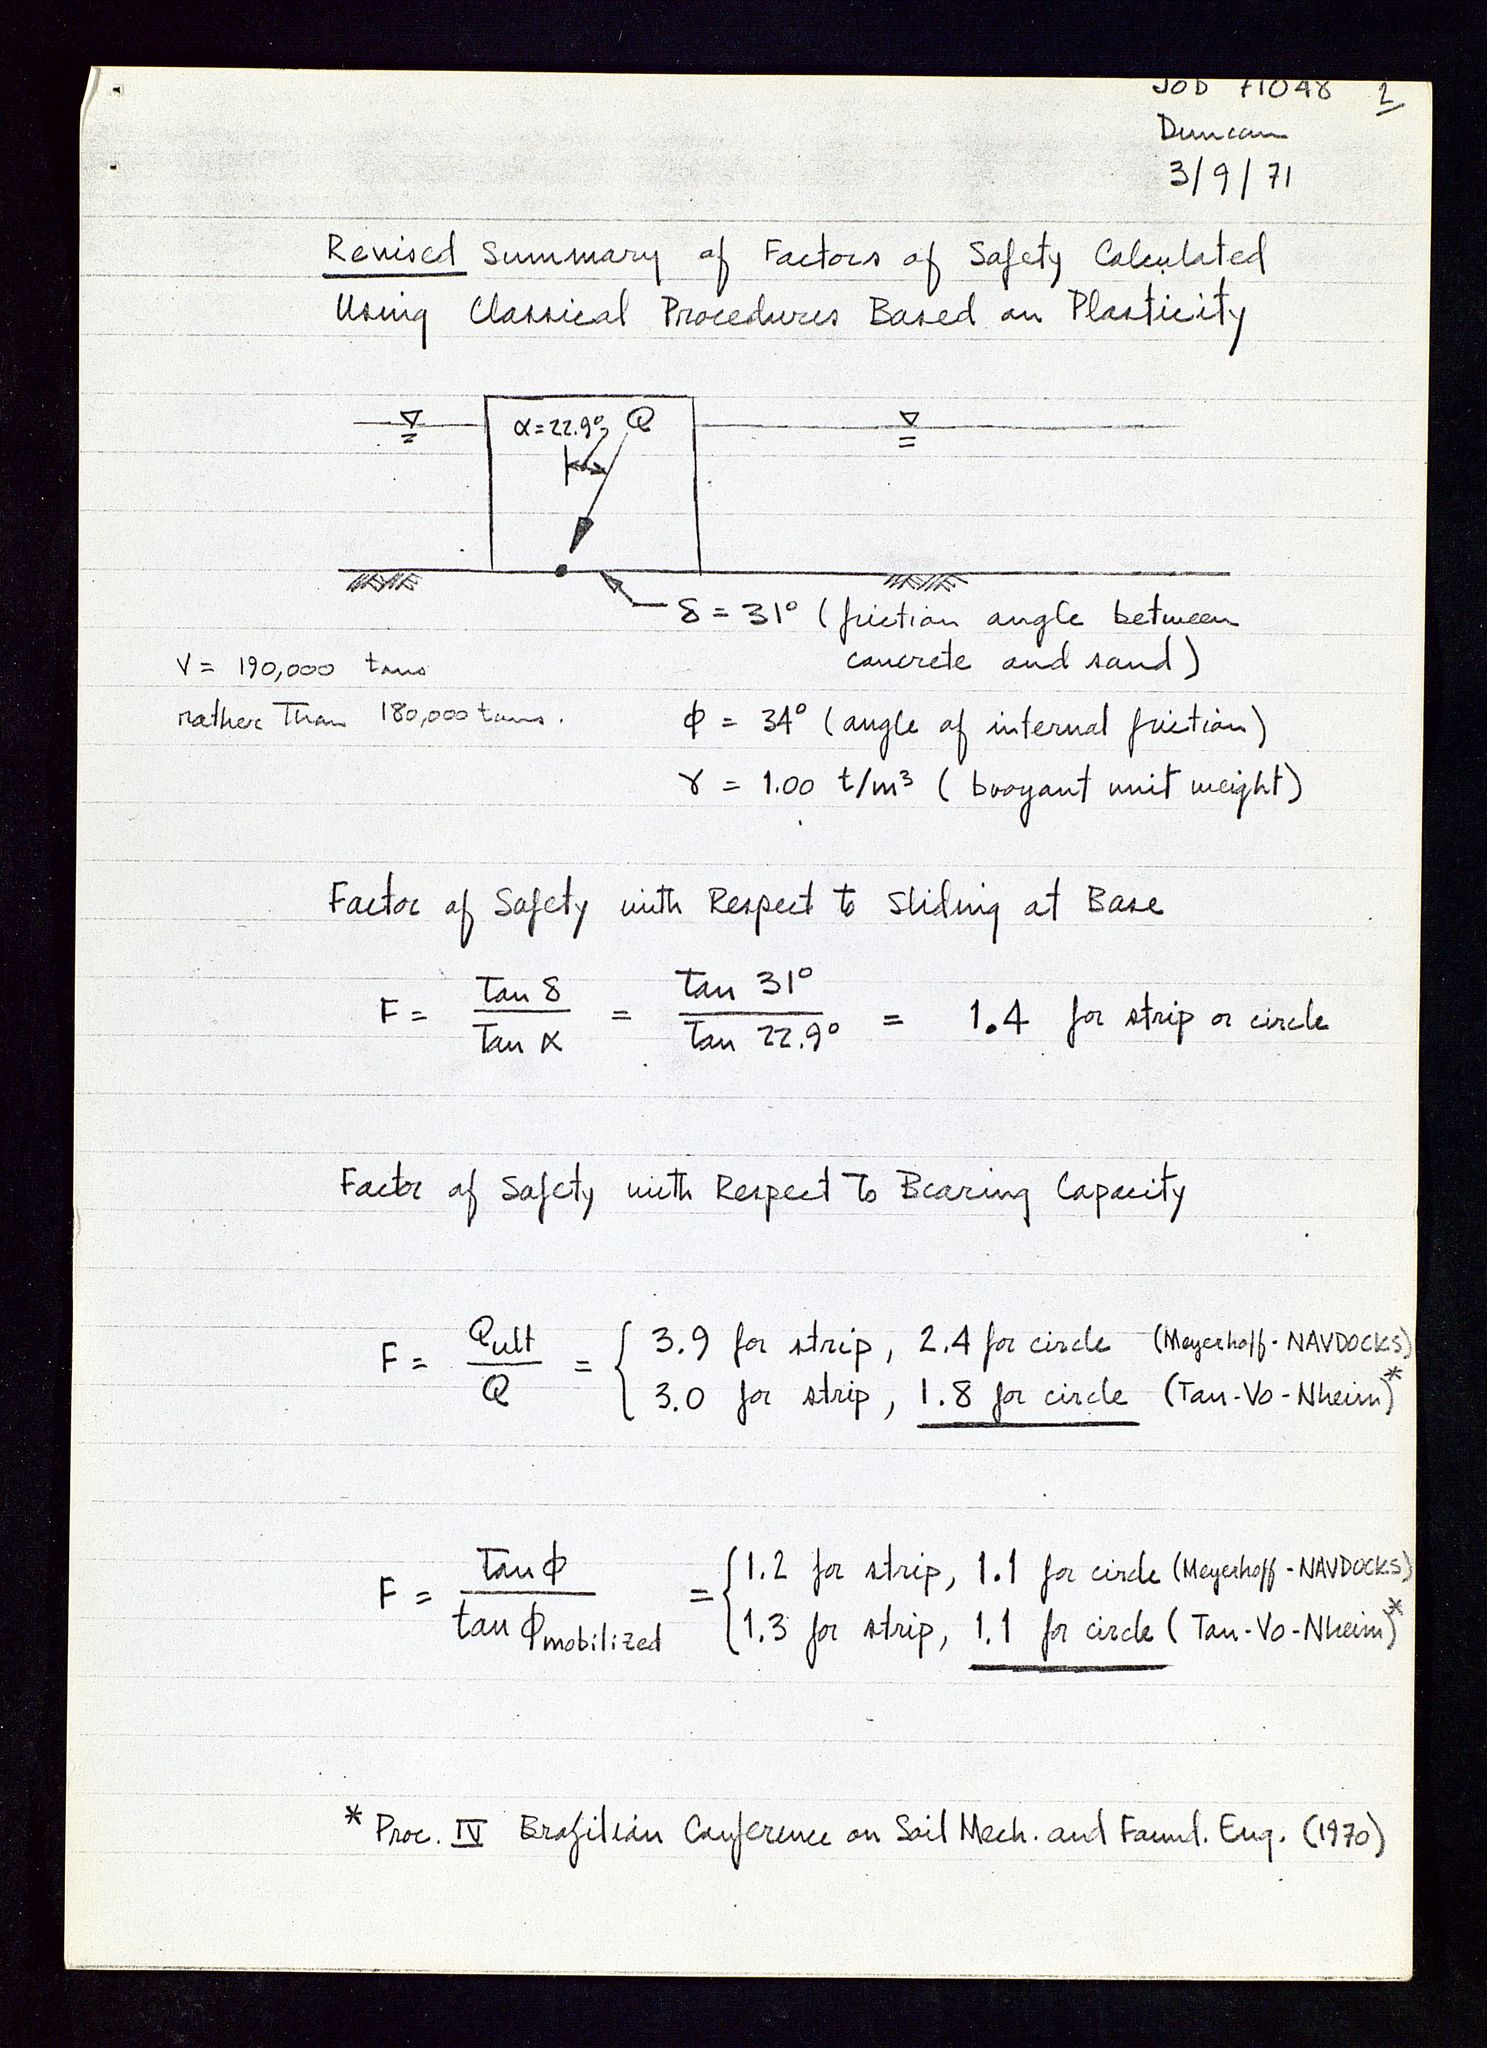 JOB 71048 2
Duncan
3/9/71
Revised Summary of Factors of Safety Calculated
Using Classical Procedures Based on Plasticity
α=22.9° Q
δ = 31° (friction angle between
concrete and sand)
V = 190,000 tons
rather Than 180,000 tons.
φ = 34° (angle of internal friction)
γ = 1.00 t/m³ (buoyant unit weight)
Factor of Safety with Respect to Sliding at Base
F = Tan δ / Tan α = Tan 31° / Tan 22.9° = 1.4 for strip or circle
Factor of Safety with Respect To Bearing Capacity
F = Qult / Q = { 3.9 for strip, 2.4 for circle (Meyerhoff-NAVDOCKS)
3.0 for strip, 1.8 for circle (Tan-Vo-Nheim)*
F = Tan φ / tan φmobilized = { 1.2 for strip, 1.1 for circle (Meyerhoff-NAVDOCKS)
1.3 for strip, 1.1 for circle (Tan-Vo-Nheim)*
* Proc. IV Brazilian Conference on Soil Mech. and Found. Eng. (1970)